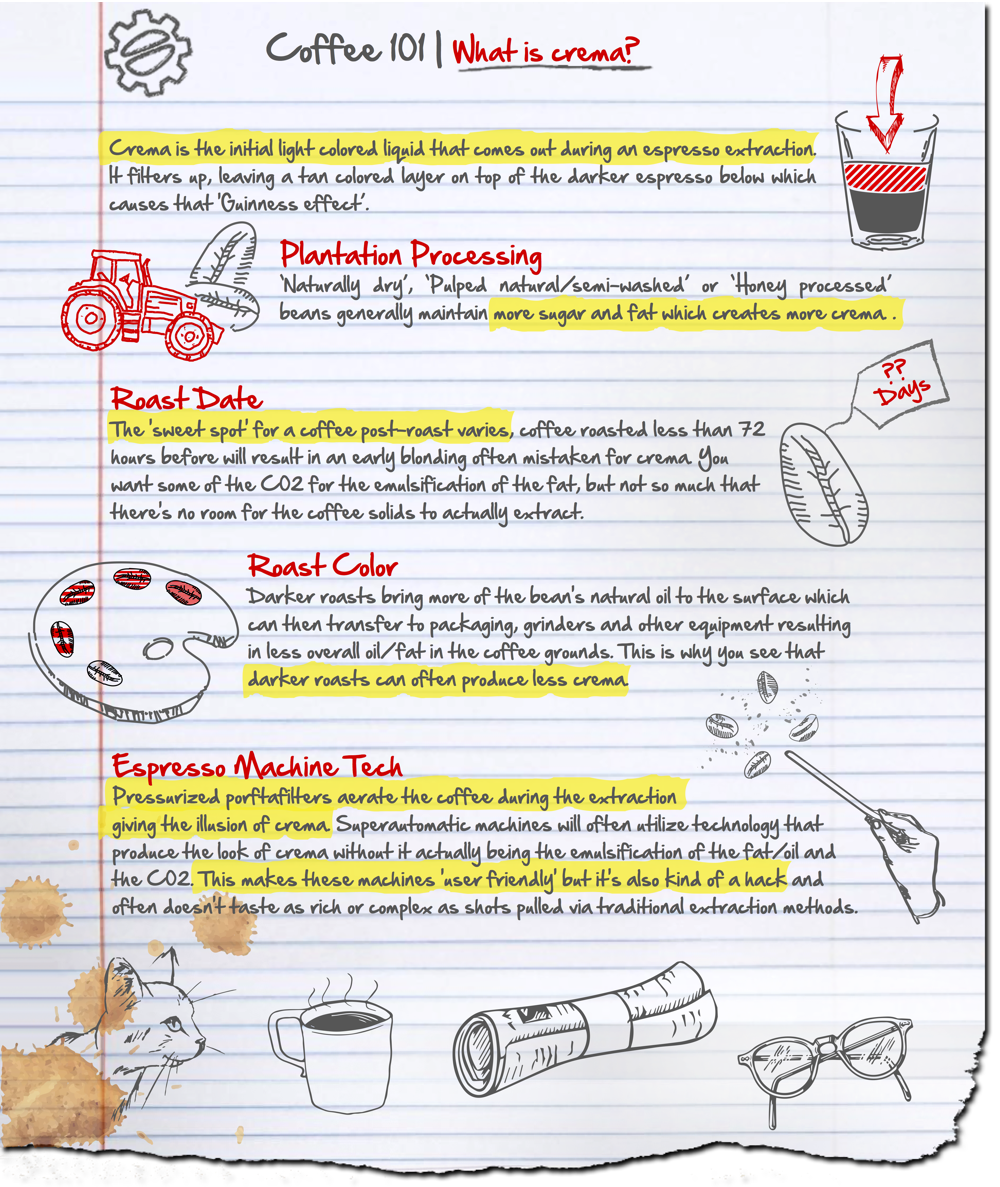 Coffee 101 | What is crema?
Crema is the initial light colored liquid that comes out during an espresso extraction.
It filters up, leaving a tan colored layer on top of the darker espresso below which
causes that 'Guinness effect'.
Plantation Processing
'Naturally dry', 'Pulped natural/semi-washed' or 'Honey processed'
beans generally maintain more sugar and fat which creates more crema .
?? 
Days
Roast Date
The 'sweet spot' for a coffee post-roast varies, coffee roasted less than 72
hours before will result in an early blonding often mistaken for crema. You
want some of the CO2 for the emulsification of the fat, but not so much that
there's no room for the coffee solids to actually extract.
Roast Color
Darker roasts bring more of the bean's natural oil to the surface which
can then transfer to packaging, grinders and other equipment resulting
in less overall oil/fat in the coffee grounds. This is why you see that
darker roasts can often produce less crema.
Espresso Machine Tech
Pressurized porftafilters aerate the coffee during the extraction
giving the illusion of crema. Superautomatic machines will often utilize technology that
produce the look of crema without it actually being the emulsification of the fat/oil and
the CO2. This makes these machines 'user friendly' but it's also kind of a hack and
often doesn't taste as rich or complex as shots pulled via traditional extraction methods.